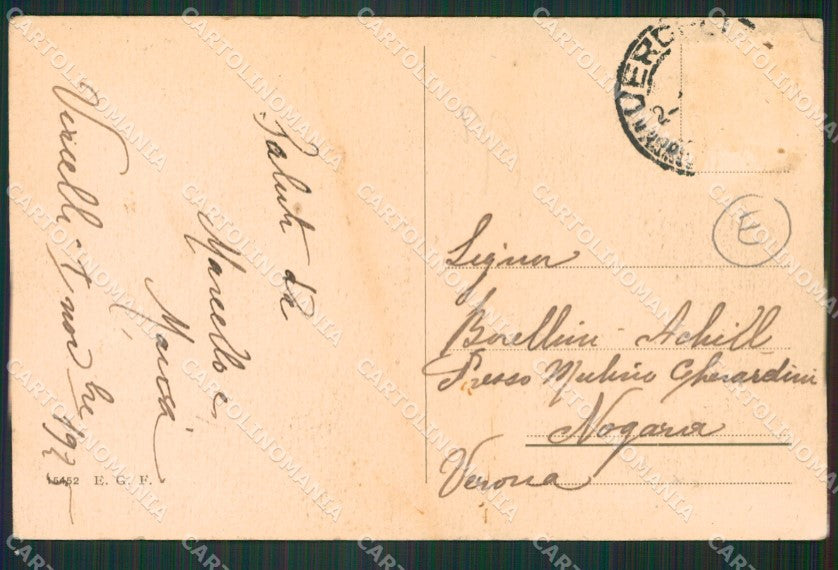 Saluti da
Marcello e
Maria
Vercelli, 1 novbre
5452 E. G. F.
VERC
2-
E
Signor
Borellini Achill
Presso Mulino Gherardini
Nogara
Verona
CARTOLINOMANIA